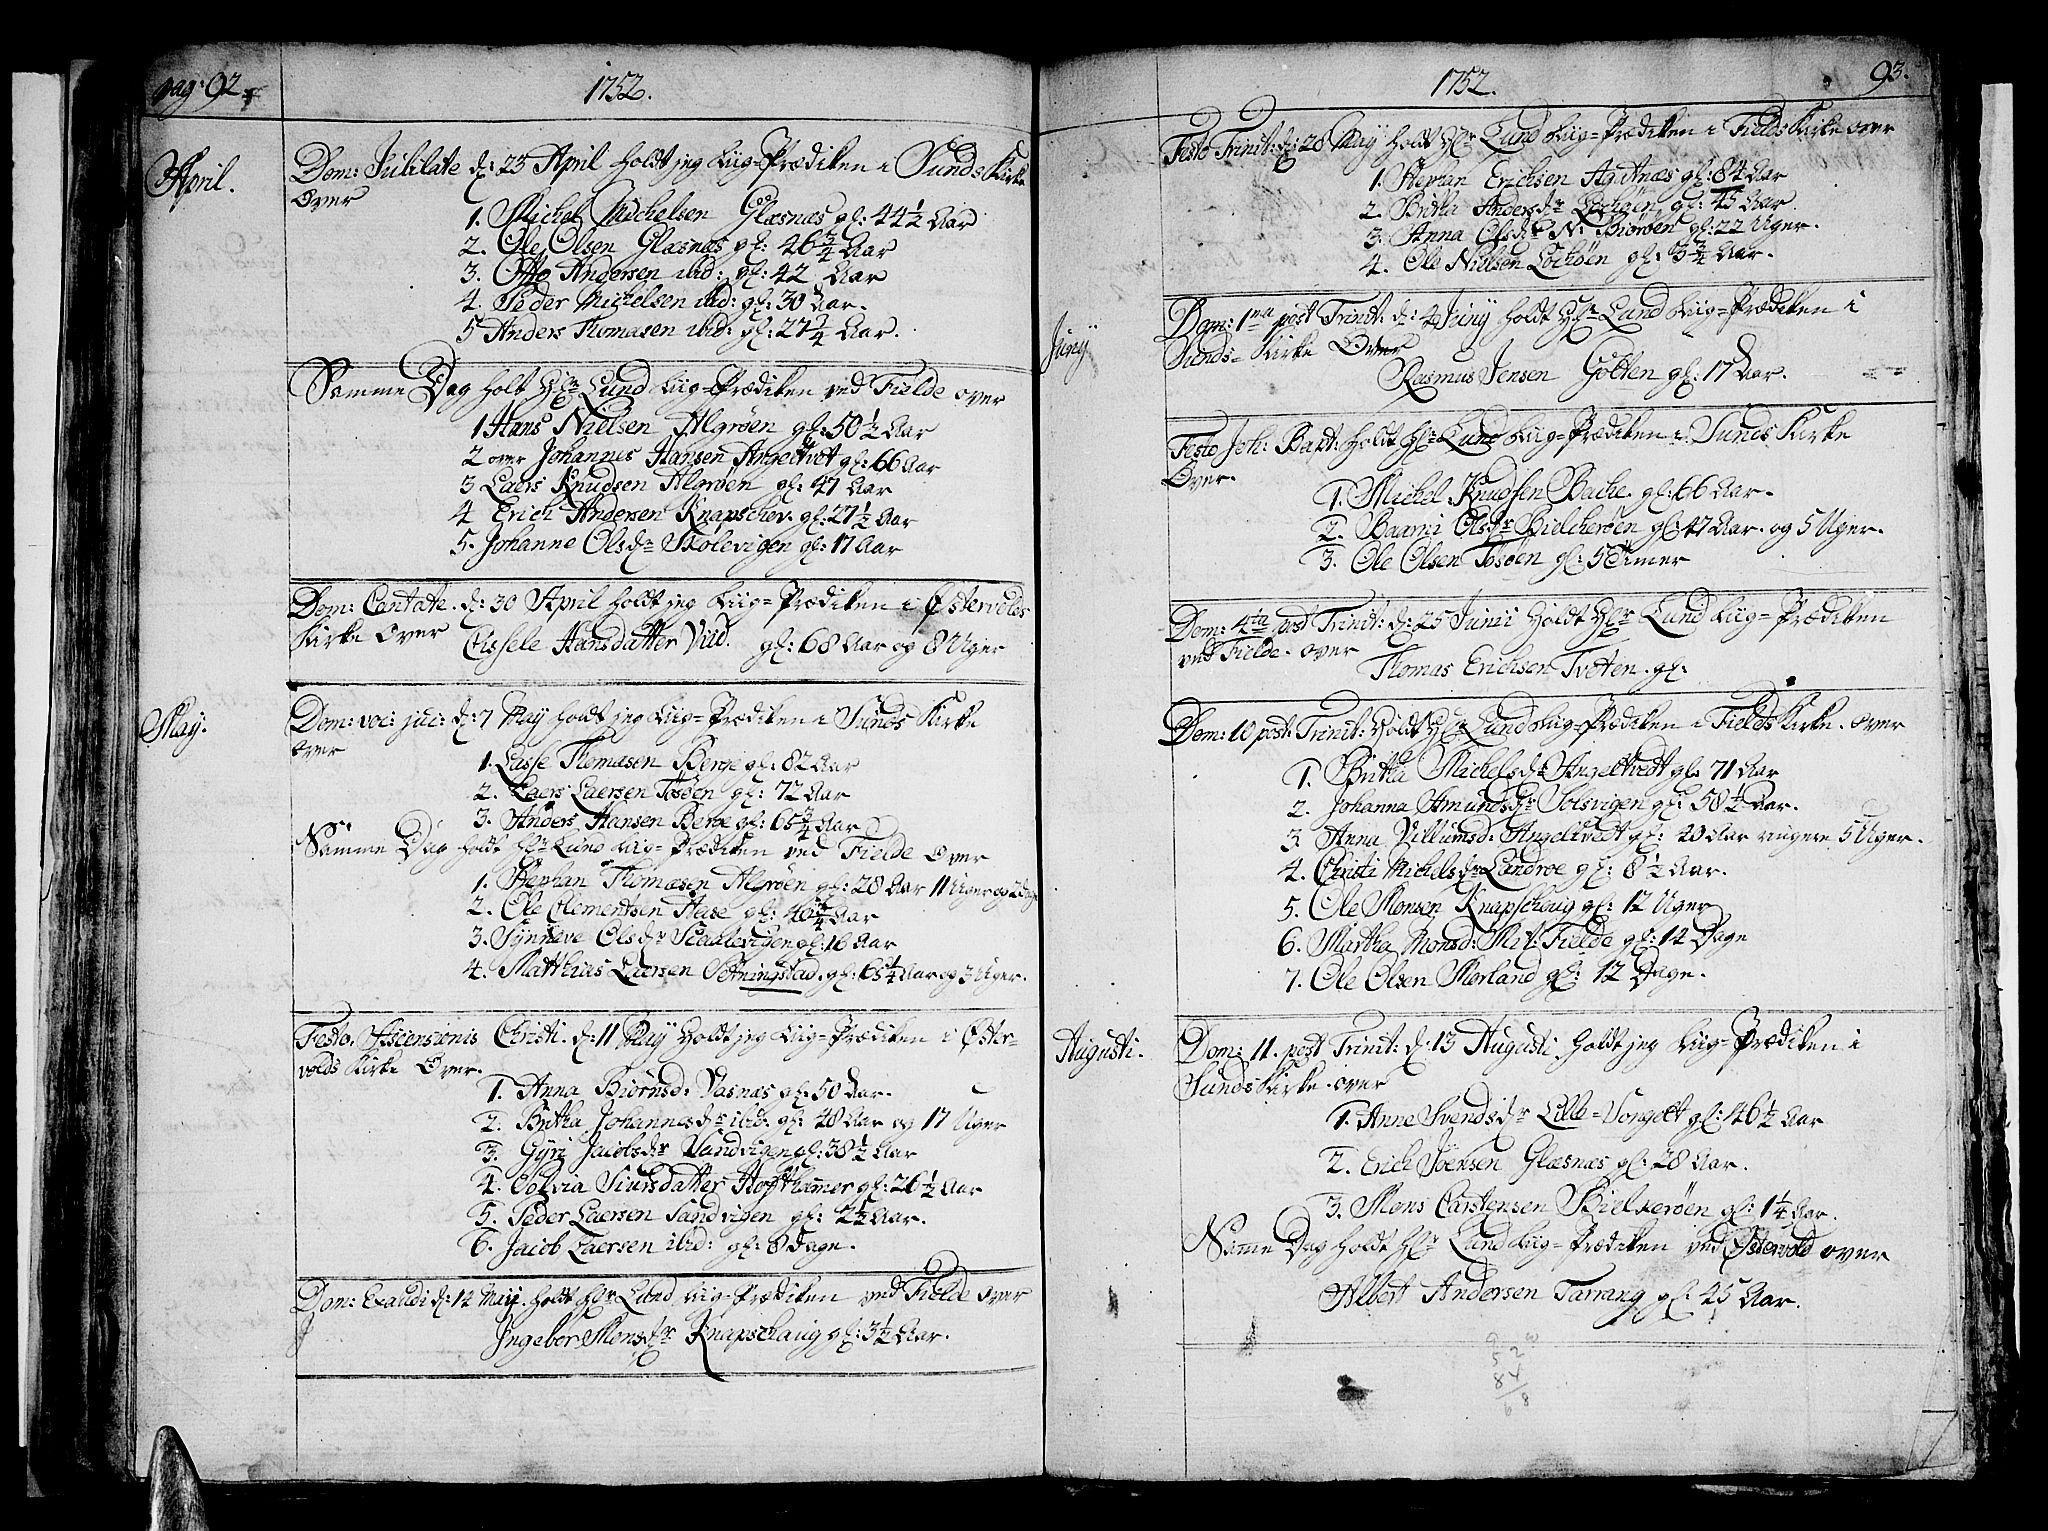 pag: 92.
1752.
April.
Dom: Jubilate d: 23 April holdt jeg Liig=Prædiken i Sunds Kirke
over
1. Michel Michelsen Glæsnæs gl: 44 1/2 Aar
2. Ole Olsen Glæsnæs gl: 46 3/4 Aar
3. Otto Andersen ibid: gl: 42 Aar
4. Peder Michelsen ibid: gl: 30 Aar.
5 Anders Thomasen ibid: gl: 27 3/4 Aar.
Samme Dag holt Hr Lund Liig=Prædiken ved Fielde over
1 Hans Nielsen Algrøen gl: 50 1/2 Aar
2 over Johannes Hansen Angeltvet gl: 66 Aar
3 Laers Knudsen Algrøen gl: 47 Aar
4 Erich Andersen Knapschev. gl: 27 1/2 Aar
5. Johanne Olsdr Skolevigen gl: 17 Aar
Dom: Cantate. d: 30 April holdt jeg Liig=Prædiken i Østervolds
Kirke over
Cissele Hansdatter Viid. gl: 68 Aar og 8 Uger
May.
Dom: voc: juc: d: 7 May holdt jeg Liig=Prædiken i Sunds Kirke
over
1. Lasse Thomasen Berge gl: 82 Aar
2. Laers Laersen Tøsøen gl: 72 Aar
3. Anders Hansen Berge gl: 65 3/4 Aar
Samme Dag holdt Hr Lund Liig=Prædiken ved Fielde Over
1. Stephan Thomæsen Algrøen gl: 28 Aar 11 Uger og 2 dage
2. Ole Clementsen Haae gl: 40 3/4 Aar
3. Synneve Olsdr gl: 16 Aar
4. Matthias Laersen Sætningstad. gl: 65 1/4 Aar og 3 Uger.
Festo. Ascensionis Christi. d: 11 May holdt jeg Liig=Prædiken i Øster-
volds Kirke Over.
1. Anna Biørnsd: Vasnæs gl: 50 Aar.
2. Britha Johannesdr ibid. gl: 48 Aar og 17 Uger
3. Gyri Jacobsdr Sandvigen gl: 38 1/2 Aar
4. Solvia Siursdatter Hoffthamer gl: 26 1/2 Aar
5. Peder Laersen Sandvigen gl: 2 1/2 Aar.
6. Jacob Laersen ibid: gl: 8 Dage.
Dom: Exaudi d: 14 Maij. holdt Hr Lund Liig=Prædiken ved Fielde Over
Ingebor Monsdr Knapschaug gl: 3 1/2 Aar.
1752.
93.
Festo Trinit: d: 28 May holdt Hr Lund Liig=Prædiken i Fields Kirke over
1. Stephan Erichsen Agotnæs gl: 84 Aar
2. Britha Andersdr Lochøen, gl: 45 Aar.
3. Anna Olsdr N: Biorøen gl: 22 Uger.
4. Ole Nielsen Lochøen gl: 3 3/4 Aar.
Juny
Dom: 1ma post Trinit: d: 4 Juny holdt Hr Lund Liig=Prædiken i
Sunds=Kirke Over
Rasmus Jensen Golten gl: 17 Aar.
Festo Joh: Bapt: holdt Hr Lund Liig=Prædiken i Sunds Kirke
Over.
1. Michel Knudsen Bache. gl: 66 Aar.
2. Baarni Olsdr Bielcherøen gl: 47 Aar. og 5 Uger.
3. Ole Olsen Tøsøen gl: 5 Timer
Dom: 4ta post Trinit: d: 25 Junii holdt Hr Lund Liig=Prædiken
ved Fielde. over
Thomas Erichsen Tveten. gl:
Dom: 10 post: Trinit: holdt Hr Lund Liig=Prædiken i Fields Kirke. over
1. Britha Michelsdr Angeltvedt gl: 71 Aar
2. Johanna Amundsdr Solsvigen gl: 58 1/2 Aar.
3. Anna Villumsd: Angeltvedt gl: 20 Aar ringere 5 Uger.
4. Christi Michelsdr Landroe gl: 8 1/2 Aar.
5. Ole Monsen Knapschoug gl: 12 Uger
6. Martha Monsd: Mit: Fielde gl: 14 Dage
7. Ole Olsen Morland gl: 12 Dage.
Augusti.
Dom: 11. post Trinit: d: 13 Augusti holdt jeg Liig=Prædiken i
Sunds Kirke. over
1. Anne Svendsdr Lille=Vorgelt gl: 46 1/2 Aar
2. Erich Joensen Glæsnæs gl: 28 Aar.
3. Mons Carstensen Bielkerøen gl: 1 1/4 Aar.
Same Dag holdt Hr Lund Liig=Prædiken ved Østervold over
Albert Andersen Tarrang gl: 45 Aar.
52
84